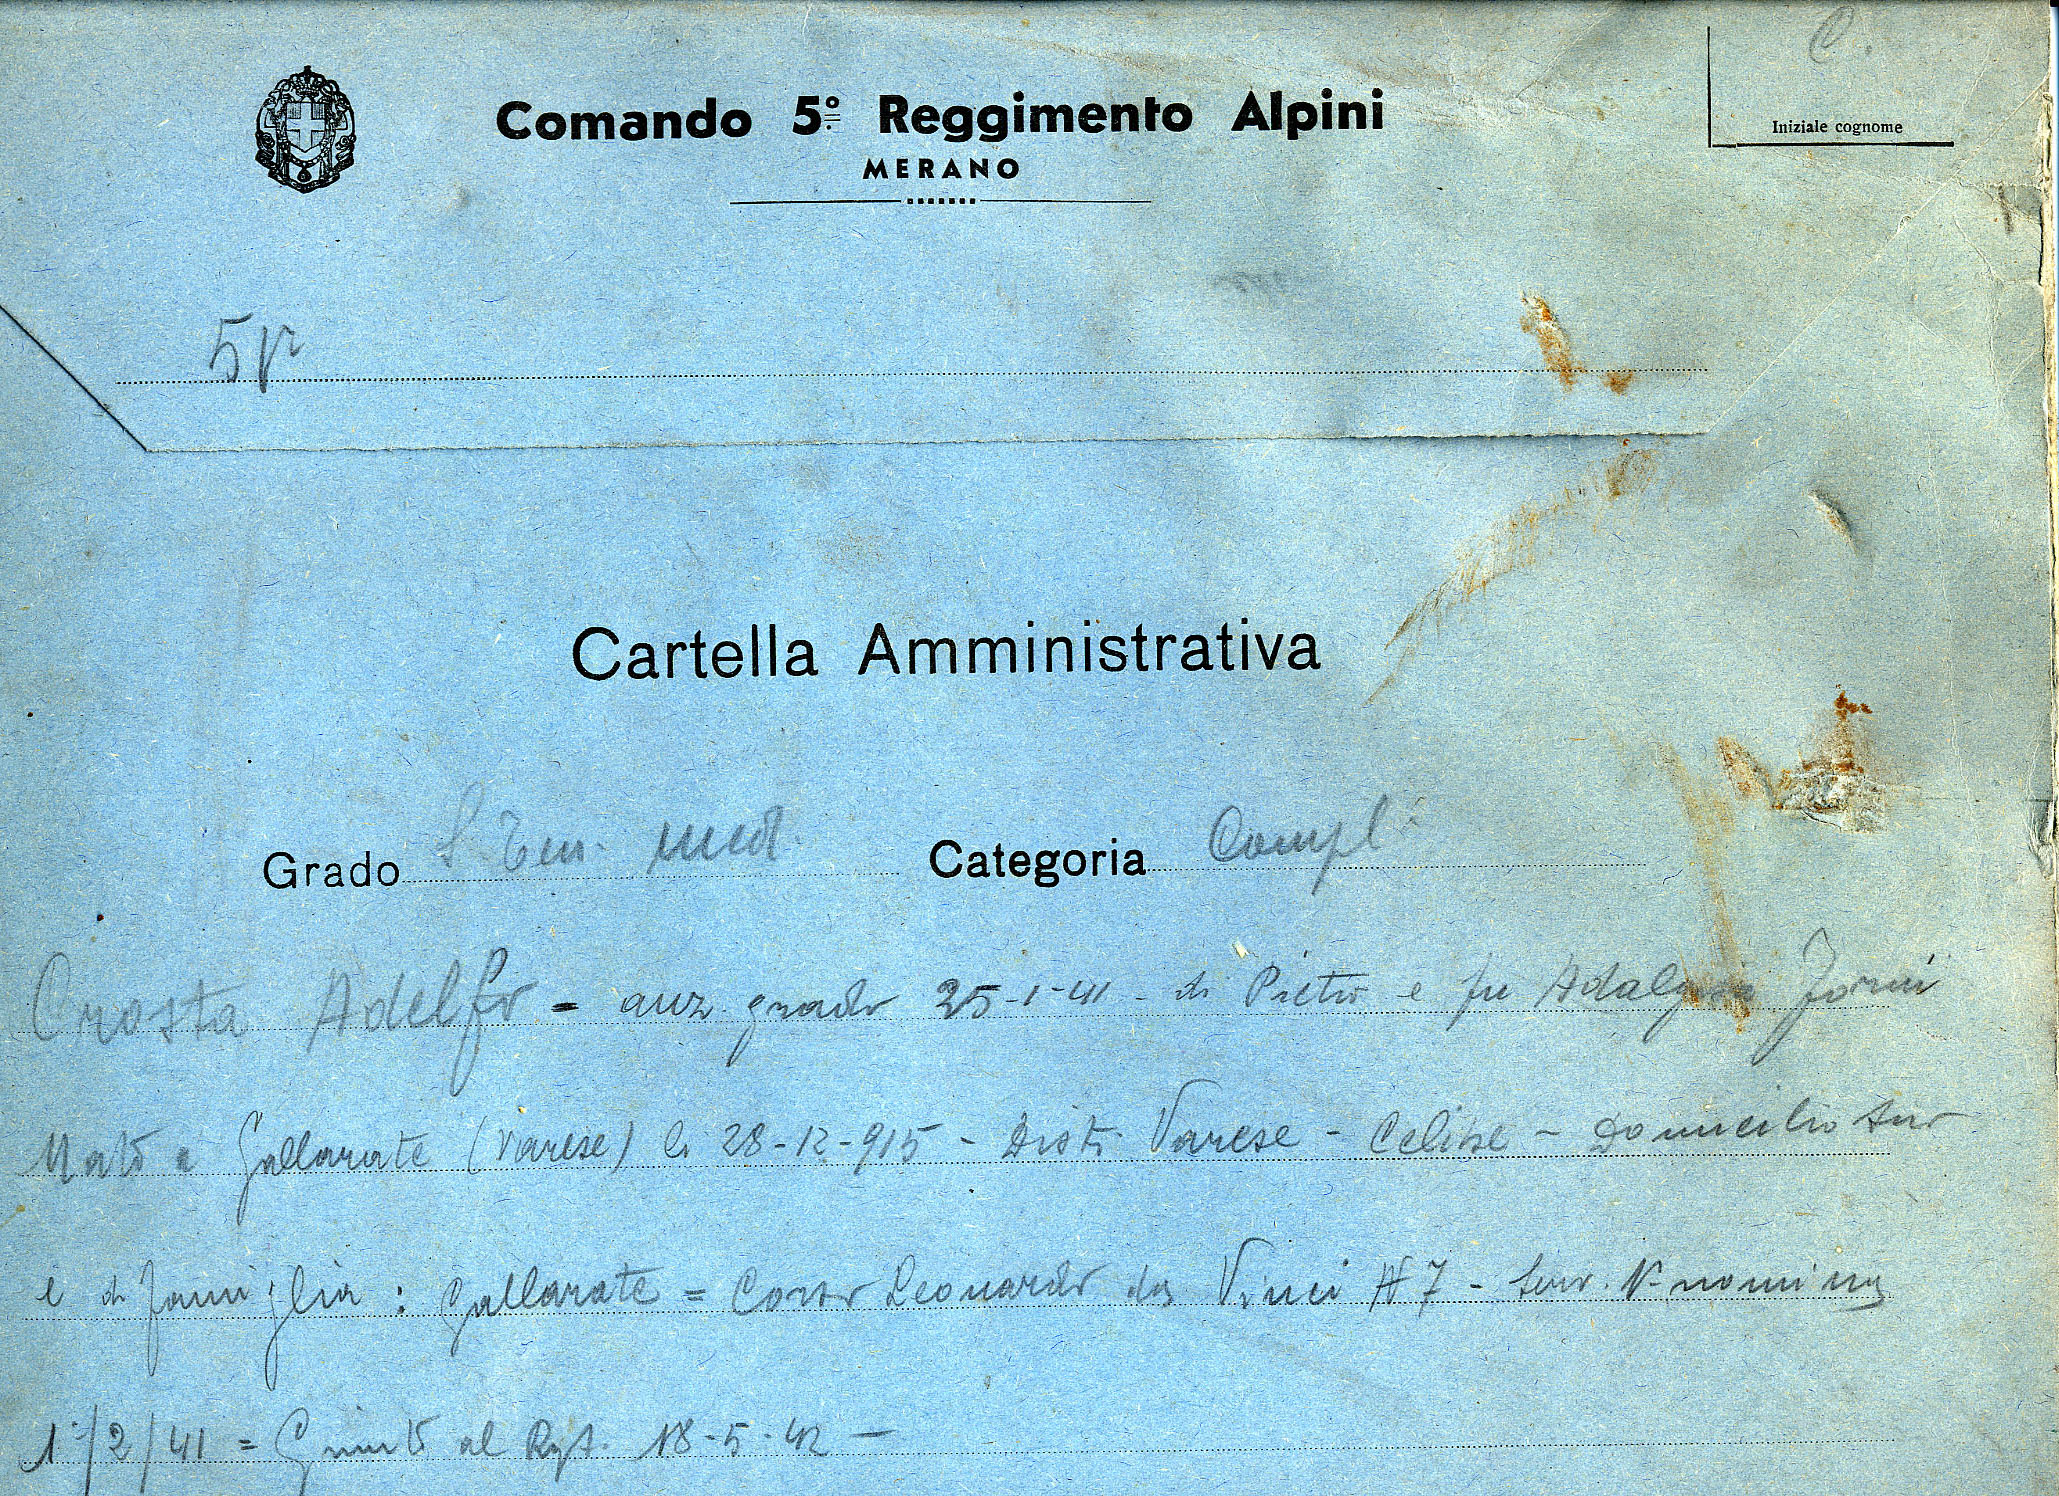 C.
Comando 5º Reggimento Alpini
MERANO
Iniziale cognome
Cartella Amministrativa
Grado S. Ten. med. Categoria Compl.
Crosta Adelfo = anz. grado 25-1-41 - di Pietro e fu Adalgisa Forni
Nato a Gallarate (Varese) li 28-12-915 - Distr. Varese - Celibe - Domicilio suo
e di famiglia: Gallarate = Corso Leonardo da Vinci N 7 - Serv. nomina
1º/2/41 = Giunto al Rgt. 18-5-42 -